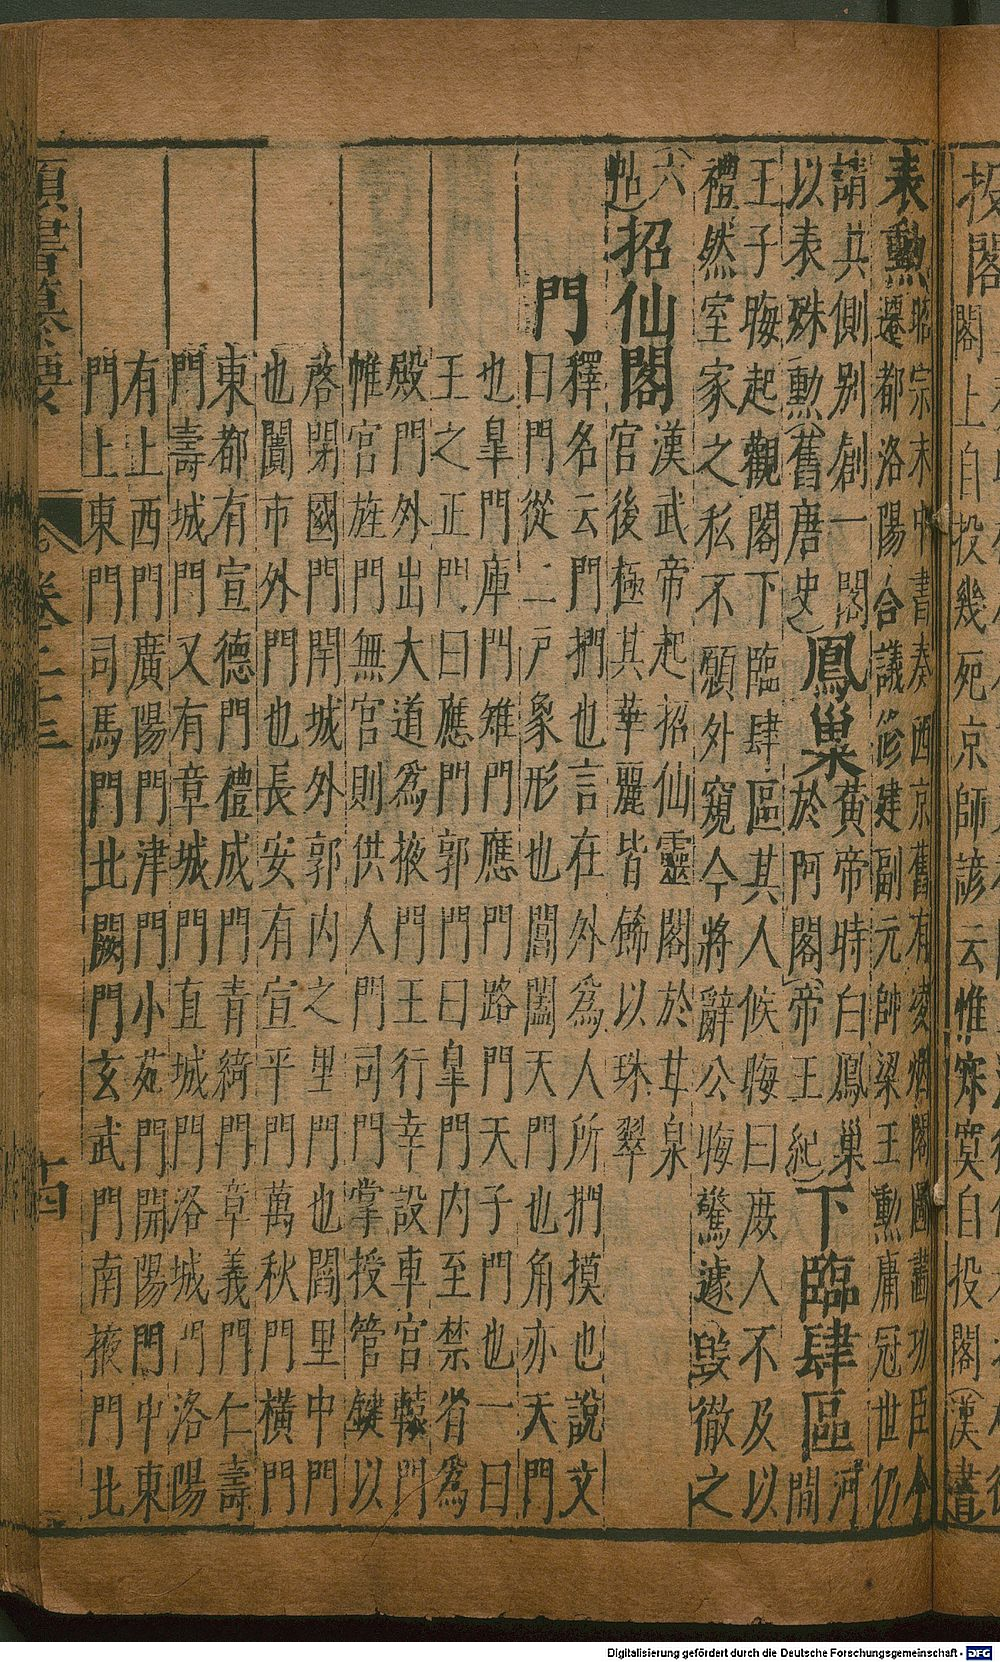 投閣閣上自投幾死京師諺云惟寂寞自投閣(漢書
表勲昭宗末中書奏西京舊有凌烟閣圖畫功臣今
遷都洛陽合議修建副元帥梁王勲庸冠世仍
請共側别創一閣
以表殊勲(舊唐史)
鳳巢黄帝時白鳳巢
於阿閣(帝王紀)
下臨肆區河
間
王子晦起觀閣下臨肆區其人候晦曰庶人不及以
禮然室家之私不願外窺今將辭公晦驚遽毀徹之
六
帖
招仙閣漢武帝起招仙靈閣於甘泉
宫後極其華麗皆飾以珠翠
門
釋名云門捫也言在外爲人所捫摸也說文
曰門從二戸象形也閶闔天門也角亦天門
也臯門庫門雉門應門路門天子門也一曰
王之正門曰應門郭門曰臯門内至禁省爲
殿門外出大道爲掖門王行幸設車宫轅門
帷宫旌門無宫則供人門司門掌授管鍵以
啓閉國門閈城外郭内之里門也閻里中門
也闠市外門也長安有宣平門萬秋門橫門
東都有宣德門禮成門青綺門章義門仁壽
門壽城門又有章城門直城門洛城門洛陽
有上西門廣陽門津門小苑門開陽門中東
門上東門司馬門北闕門玄武門南掖門北
類書纂要 卷之二十三 十四
Digitalisierung gefördert durch die Deutsche Forschungsgemeinschaft - DFG